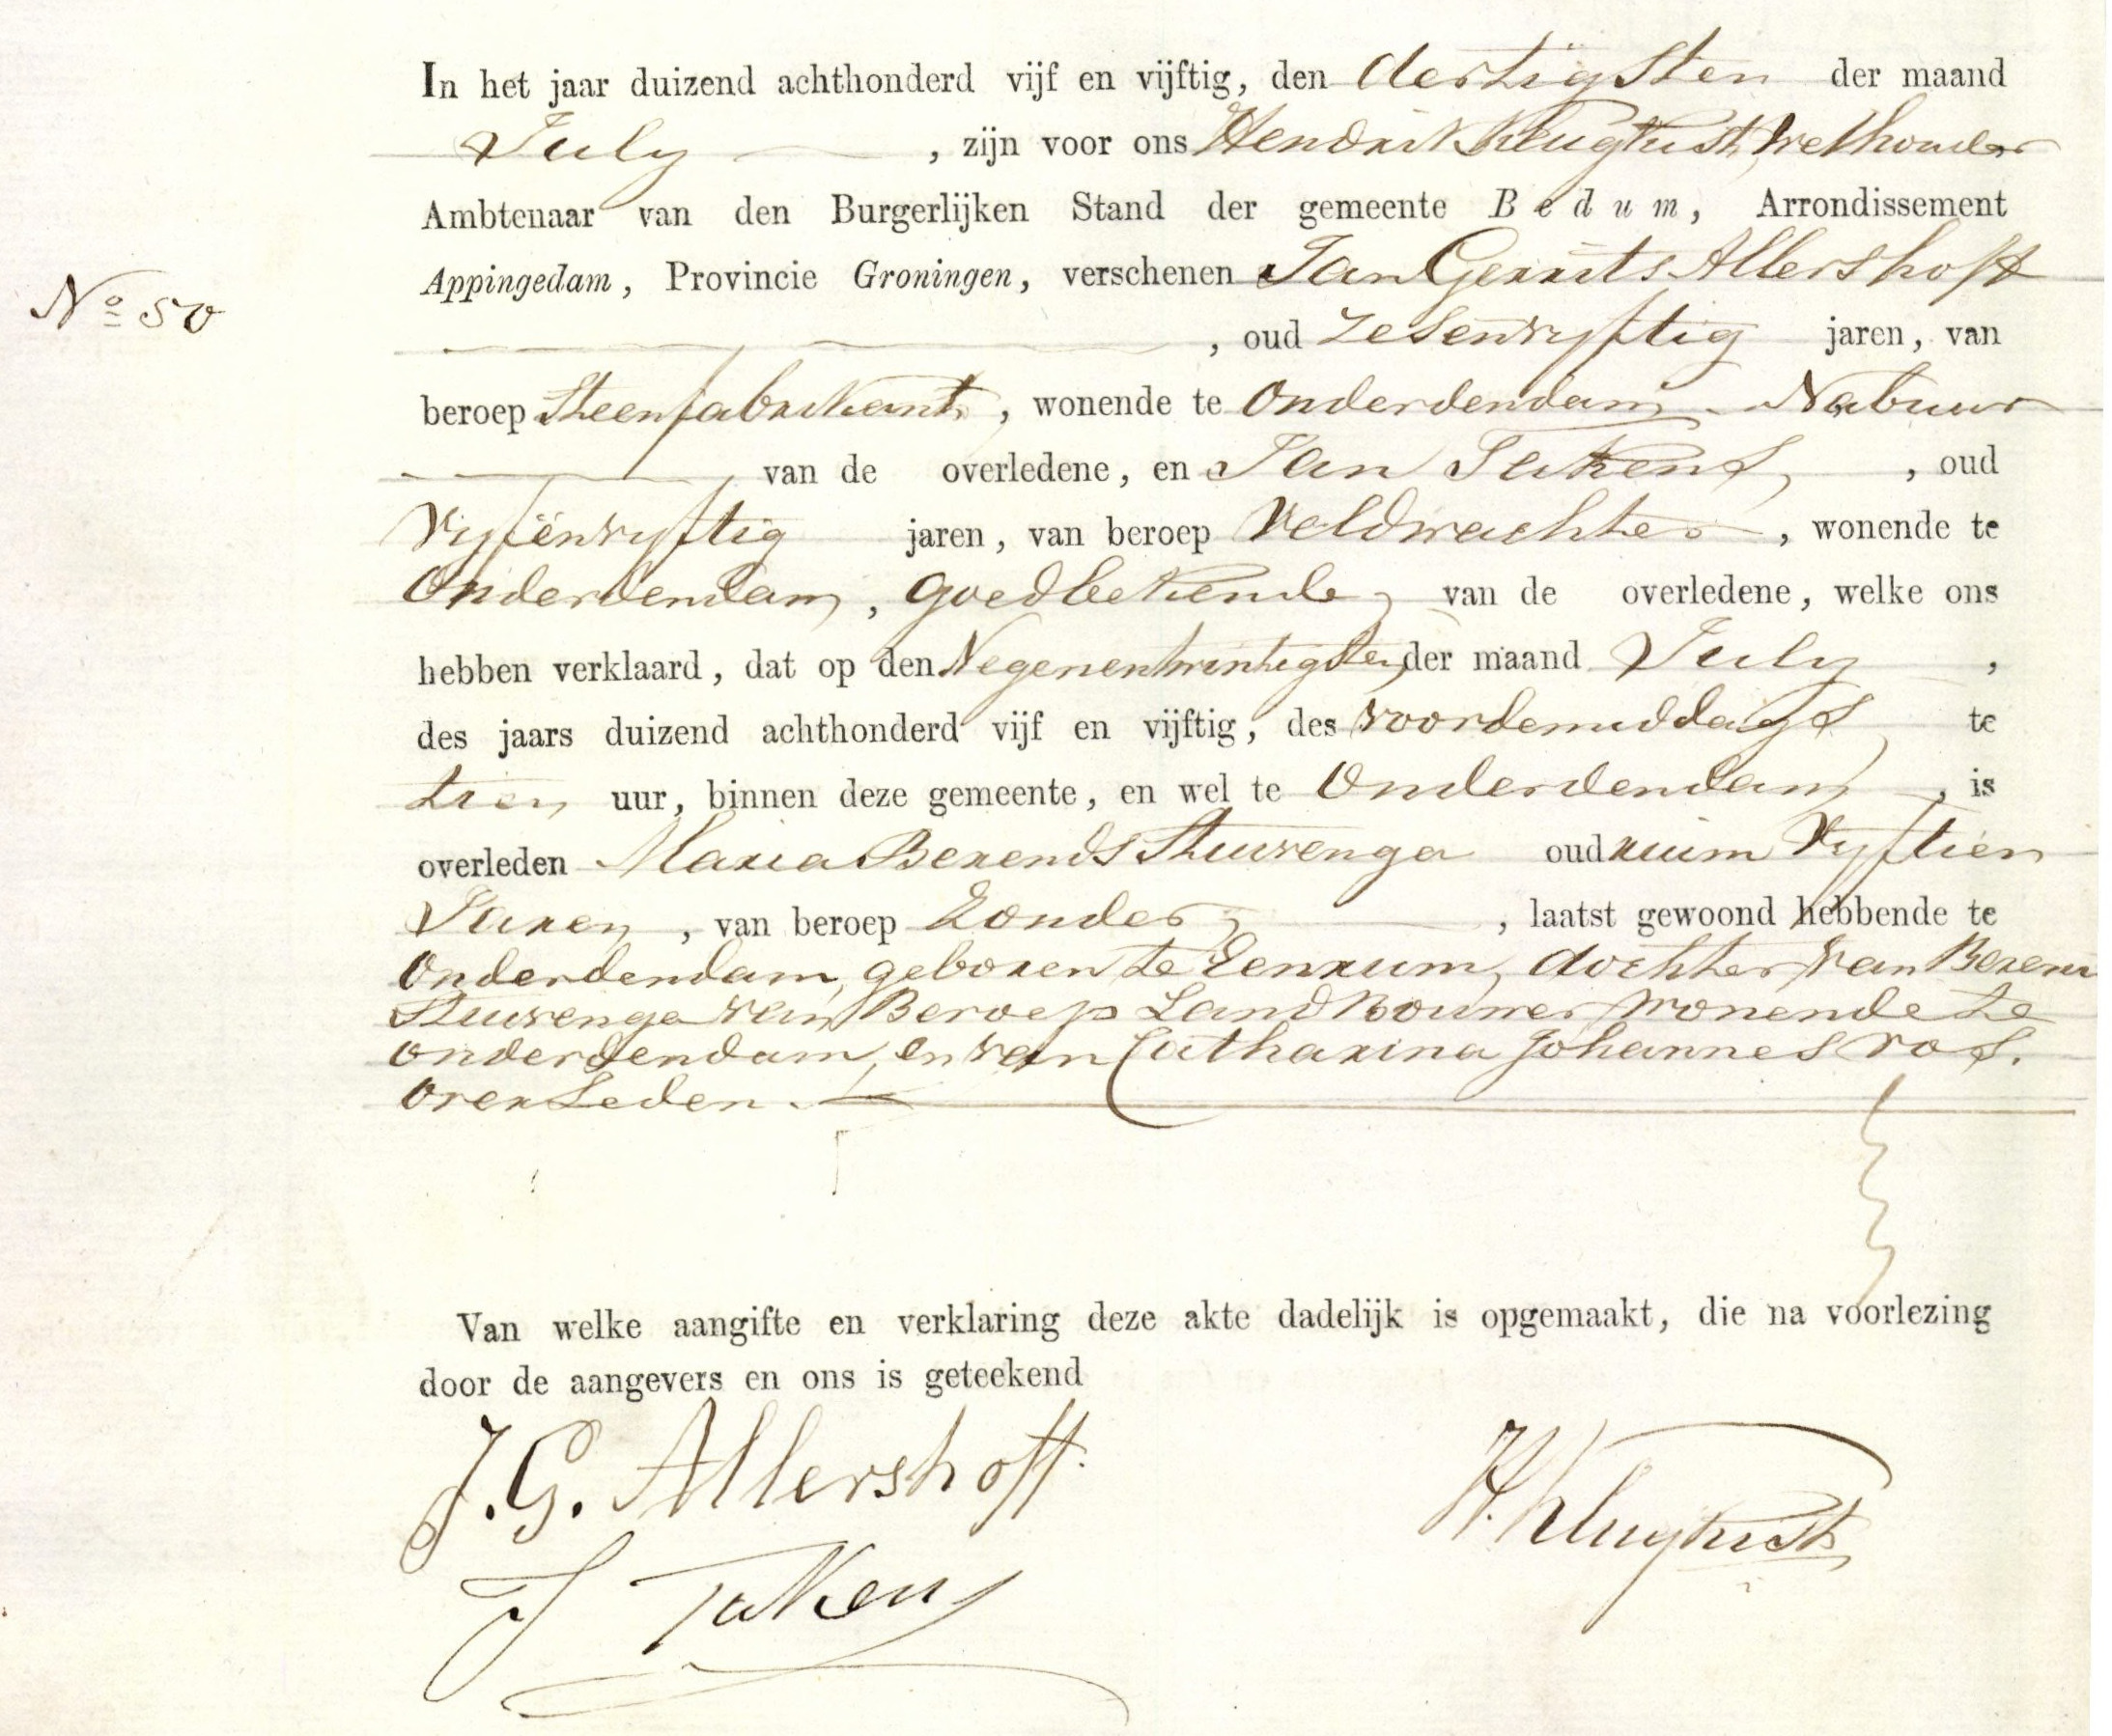 In het jaar duizend achthonderd vijf en vijftig, den dertigsten der maand
July , zijn voor ons Hendrik Klughuist, Wethouder
Ambtenaar van den Burgerlijken Stand der gemeente Bedum, Arrondissement
Appingedam, Provincie Groningen, verschenen Jan Gerrits Allershoff
No 50
, oud Zesenvyftig jaren, van
beroep Steenfabrikant, wonende te Onderdendam, Nabuur
van de overledene, en Jan Takens, , oud
Vyfenvyftig jaren, van beroep Veldwachter , wonende te
Onderdendam, goedbekende, van de overledene, welke ons
hebben verklaard, dat op den Negenentwintigsten der maand July ,
des jaars duizend achthonderd vijf en vijftig, des voordemiddags te
tien uur, binnen deze gemeente, en wel te Onderdendam , is
overleden Maria Berends Stuivenga oud ruim Vyftien
Jaren , van beroep Zonder, , laatst gewoond hebbende te
Onderdendam, geboren te Eenrum, dochter van Berend
Stuivenga van Beroep Landbouwer wonende te
Onderdendam, en van Catharina Johannes Vos.
overleden.
Van welke aangifte en verklaring deze akte dadelijk is opgemaakt, die na voorlezing
door de aangevers en ons is geteekend
J. G. Allershoff.
H. Klughuist
J Takens